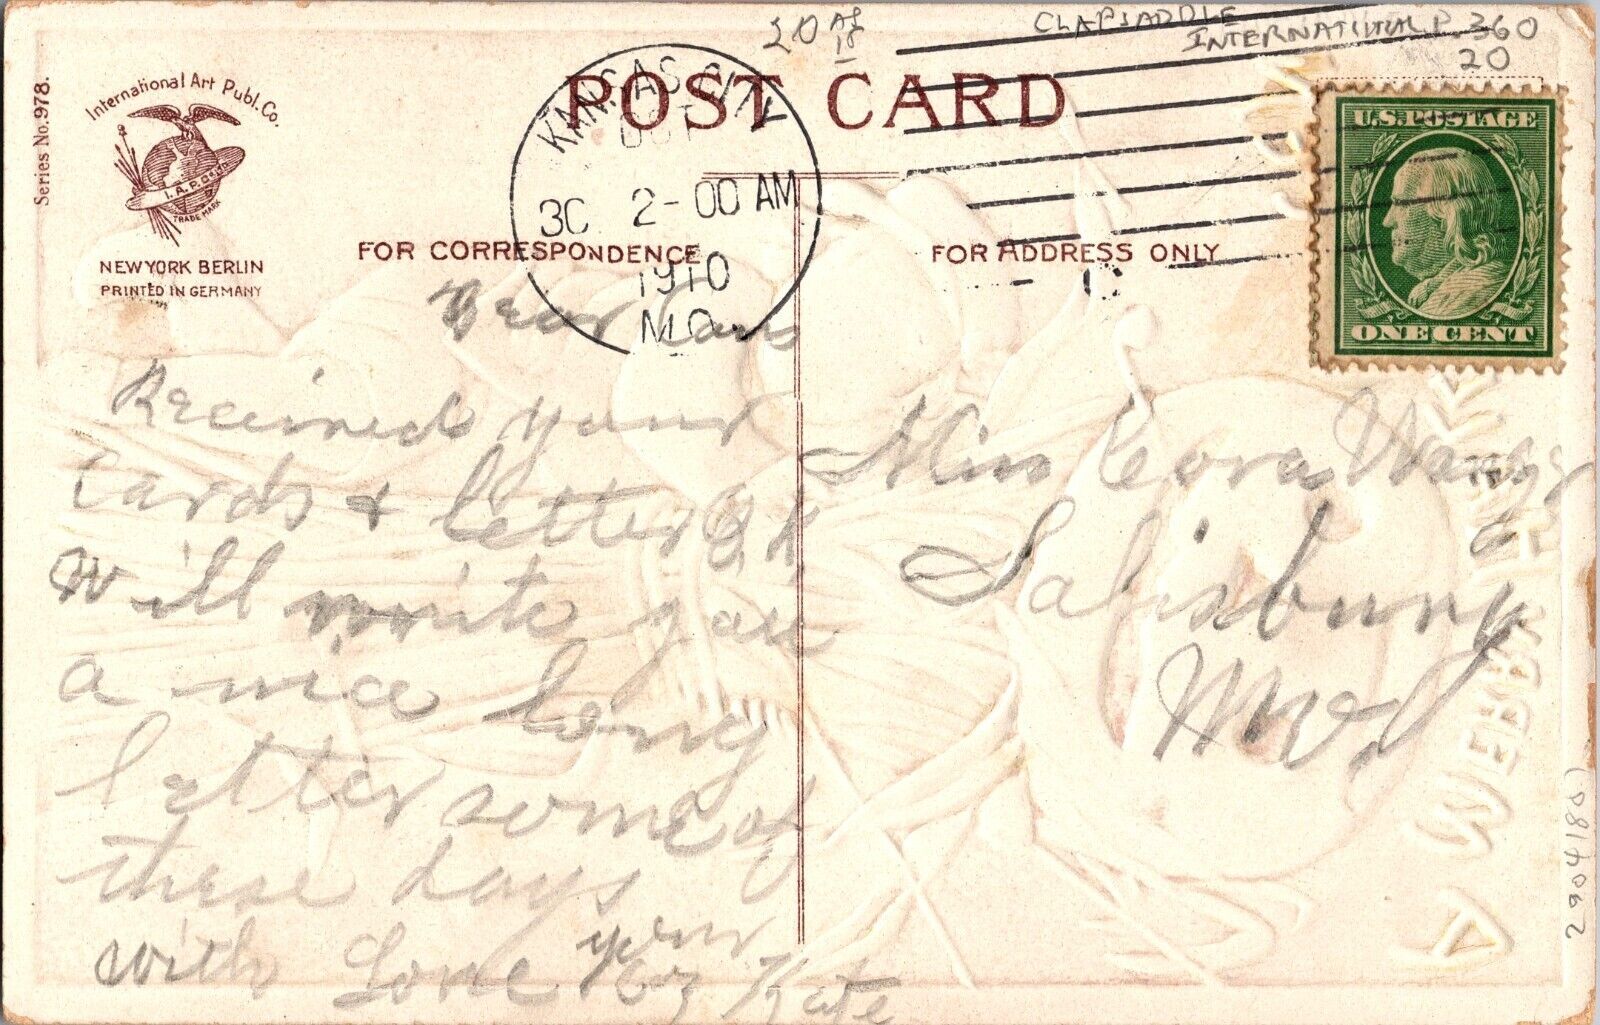 20
CLAPSADDLE
INTERNATIONAL P. 360
20
POST CARD
Series No. 978.
International Art Publ. Co.
I. A. P. Co.
TRADE MARK
NEW YORK BERLIN
PRINTED IN GERMANY
KANSAS CITY
OCT
30 2-00 AM
1910
MO.
U.S. POSTAGE
ONE CENT
FOR CORRESPONDENCE
FOR ADDRESS ONLY
Dear
Received your
cards & letter O.K.
Will write you
a nice long
letter some of
these days
with Love your
Kate
Miss Cora
Salisbury
Mo.
2904180)